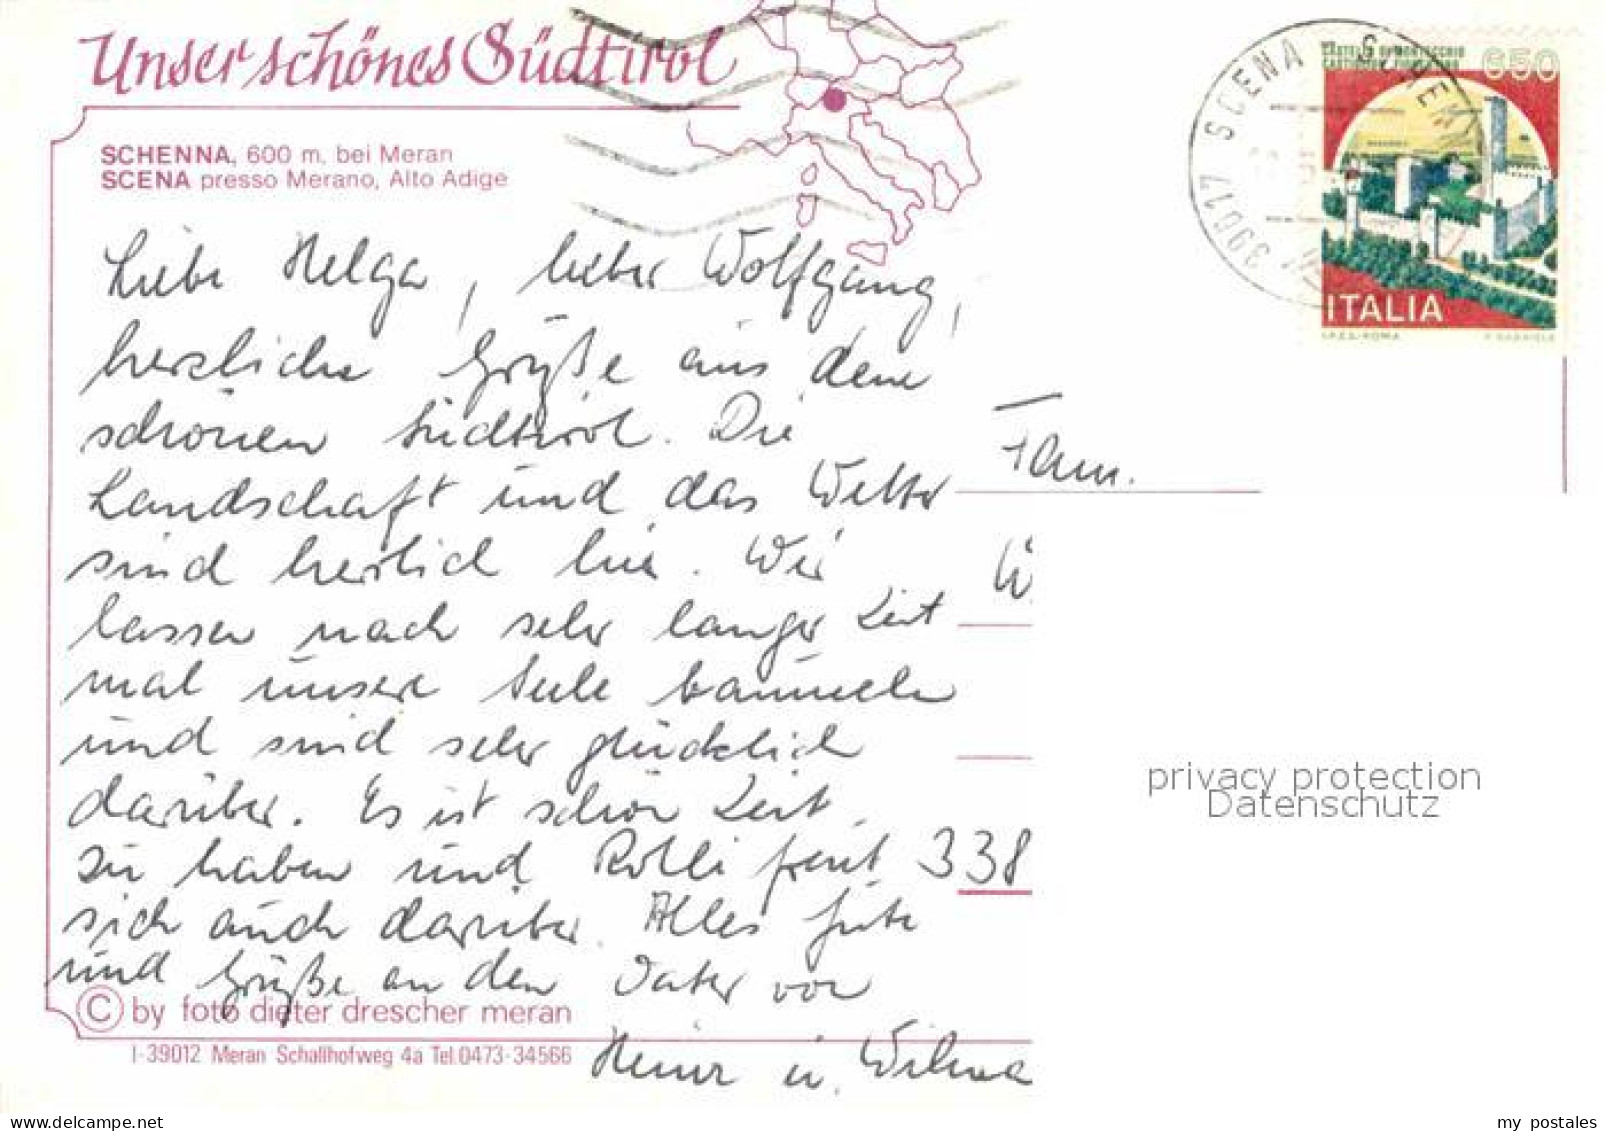 Unser schönes Südtirol
SCHENNA, 600 m, bei Meran
SCENA presso Merano, Alto Adige
Liebe Helga, lieber Wolfgang,
herzliche Grüße aus dem
schönen Südtirol. Die
Landschaft und das Wetter
sind herrlich hier. Wir
lassen nach sehr langer Zeit
mal unsere Seele baumeln
und sind sehr glücklich
darüber. Es ist schön Zeit
zu haben und Rolli freut
sich auch darüber. Alles Gute
und Grüße an den Vater von
Heinz u. Wilma
© by foto dieter drescher meran
I-39012 Meran Schallhofweg 4a Tel.0473-34566
39017 SCENA SCHENNA
650
ITALIA
I.P.Z.S.-ROMA
Fam.
W
338
privacy protection
Datenschutz
my postales
delcampe.net